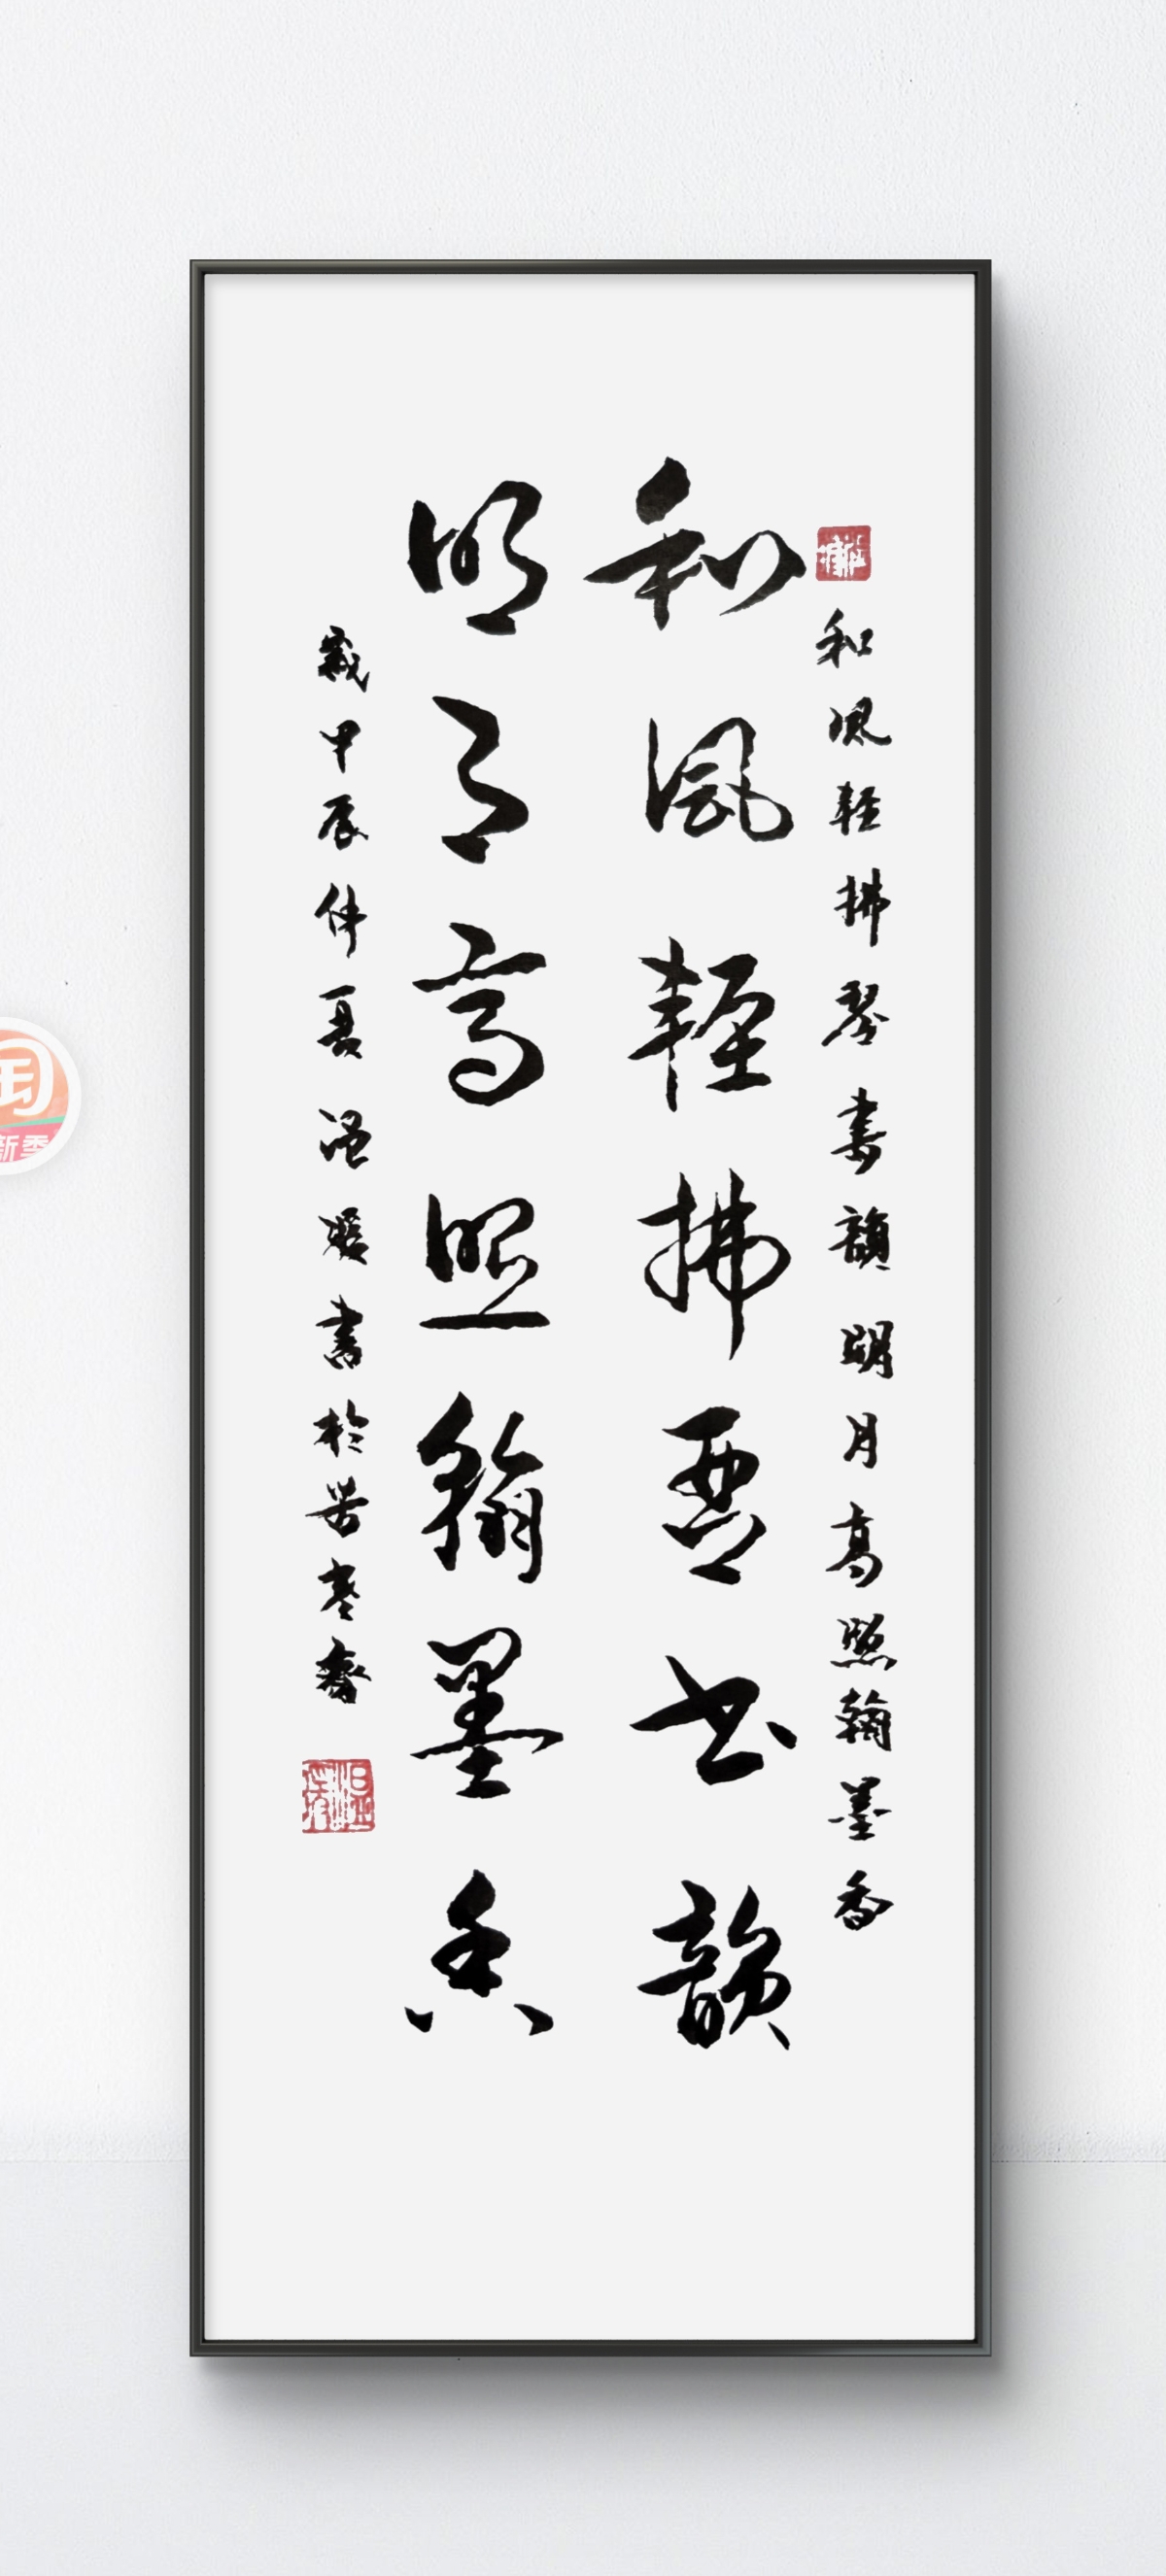 和風輕拂琴書韻明月高照翰墨香
和風輕拂琴书韻
明月高照翰墨香
歲甲辰仲夏溫暖書於
新季